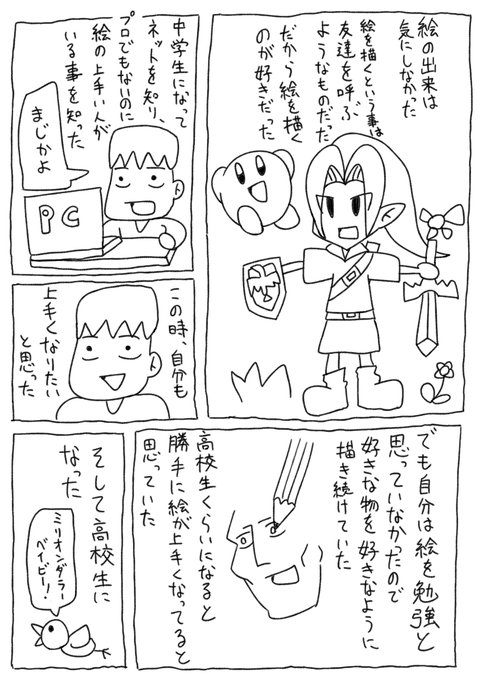 絵の出来は
気にしなかった
絵を描くという事は
友達を呼ぶ
ようなものだった
だから絵を描く
のが好きだった
中学生になって
ネットを知り、
プロでもないのに
絵の上手い人が
いる事を知った
まじかよ
PC
この時、自分も
上手くなりたい
と思った
でも自分は絵を勉強と
思っていなかったので
好きな物を好きなように
描き続けていた
高校生くらいになると
勝手に絵が上手くなってると
思っていた
そして高校生に
なった
ミリオンダラー
ベイビー!